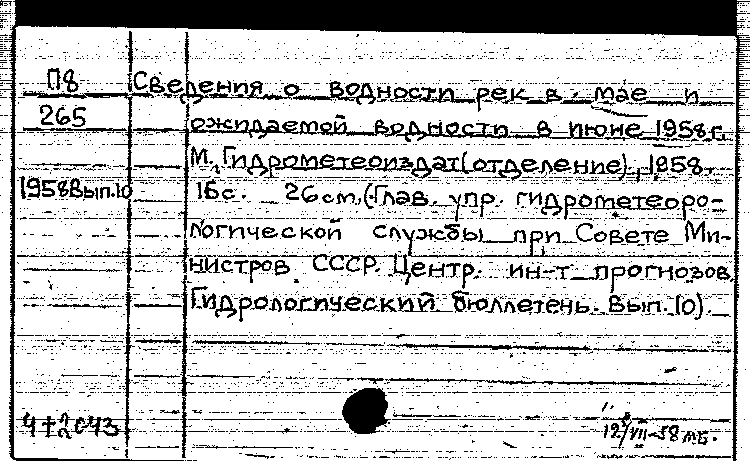 П8 Сведения о водности рек в мае и
265 ожидаемой водности в июне 1958 г.
М., Гидрометеоиздат (отделение), 1958.
1958 Вып.10 16с. 26 cm. (Глав. упр. гидрометеоро-
логической службы при Совете Ми-
нистров СССР. Центр. ин-т прогнозов.
Гидрологический бюллетень. Вып. 10).
12/VII-58